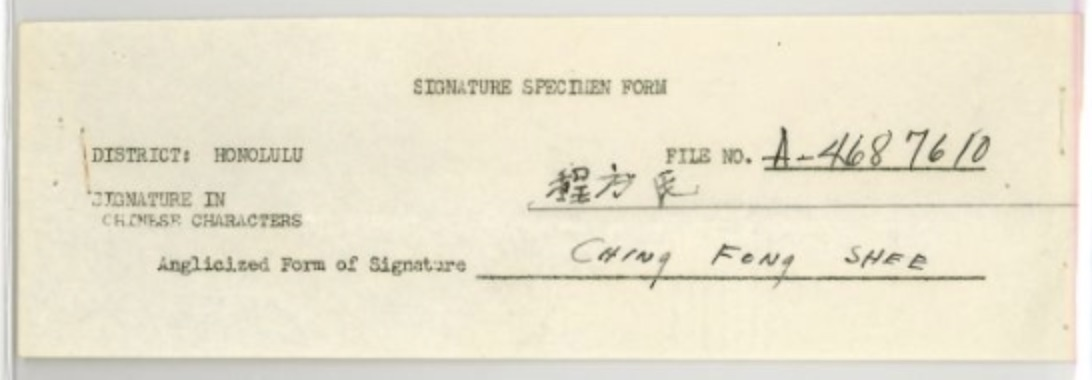 SIGNATURE SPECIMEN FORM
DISTRICT: HONOLULU FILE NO. A-4687610
SIGNATURE IN 程方氏
CHINESE CHARACTERS
Anglicized Form of Signature CHING FONG SHEE